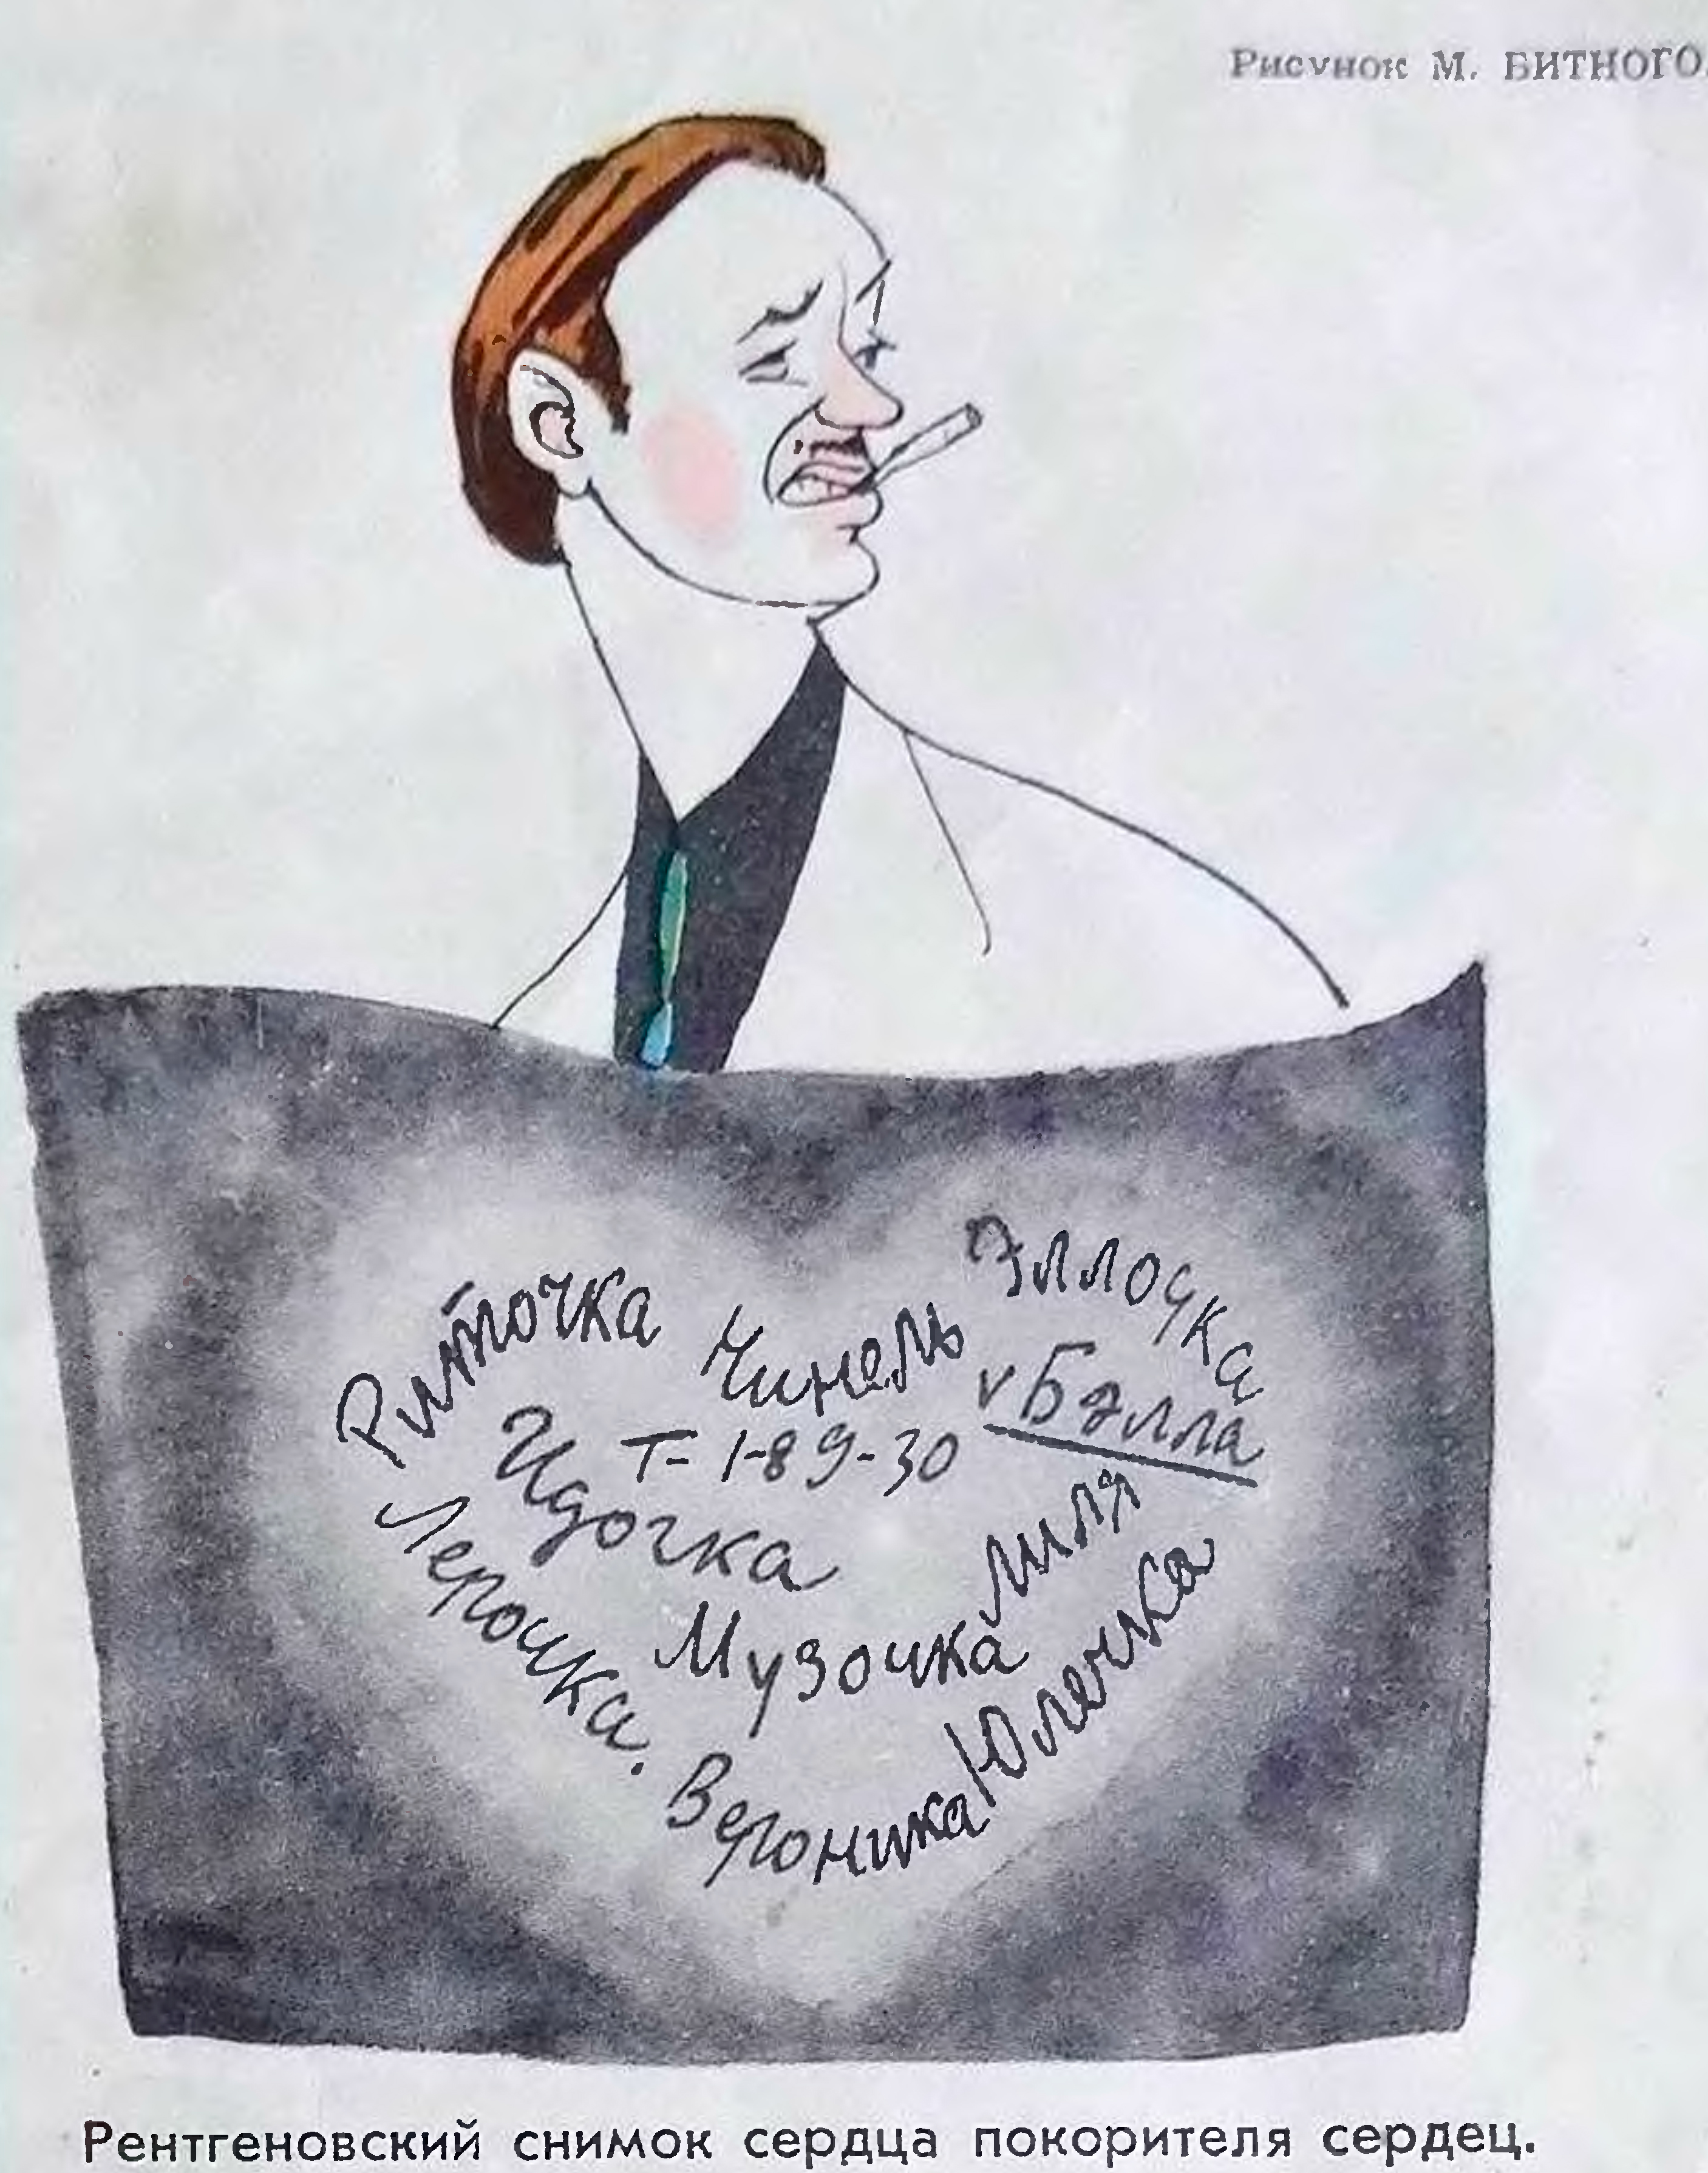 Рисунок М. БИТНОГО.
Риточка
Нинель
Эллочка
v Бэлла
Т- 1-89-30
Идочка
Лерочка.
Лиля
Музочка
Юлечка
Вероника
Рентгеновский снимок сердца покорителя сердец.